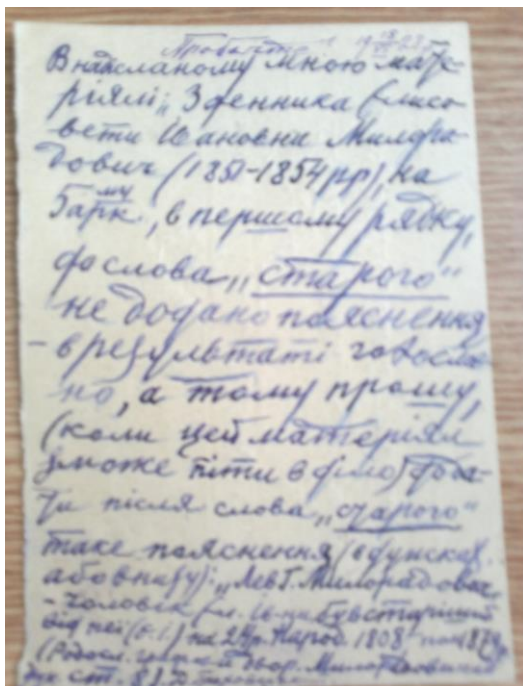 В надісланому мною мате-
ріялі: „З денника Єлиса-
вети Івановни Милора-
дович (1851-1854 рр), на
5му арк., в першому рядку,
до слова „старого"
не додано пояснення
– в результаті
но, а тому прошу,
(коли цей матеріял
зможе піти в діло) дода-
ти після слова „старого"
таке пояснення (в дужках
або внизу): „Лев Г. Милорадович
– чоловік Єл. Ів-ни був старіший
від неї на 24 р. Народ. 1808
(Родосл. двор. Милорадович
стр. 83.